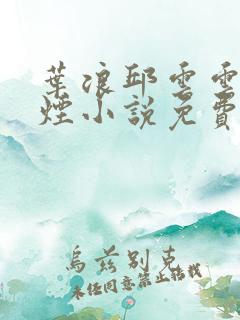 葉浪邱雲雲
煙小說免費
烏茲別克
未經同意禁止轉載